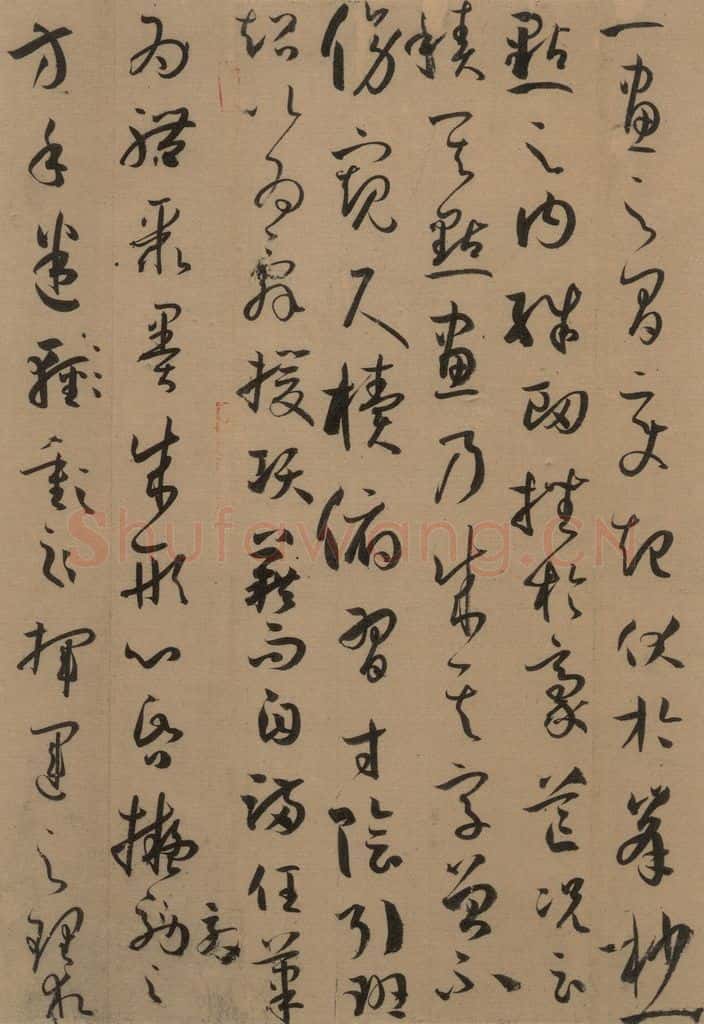 一畫之間變起伏於峯杪一
點之內殊衄挫於豪芒況云
積其點畫乃成其字曾不
傍窺尺牘俯習寸陰引班
超以為辭援項籍而自滿任筆
為體聚墨成形心昏擬効之
方手迷揮運之理求
Shufawang.CN